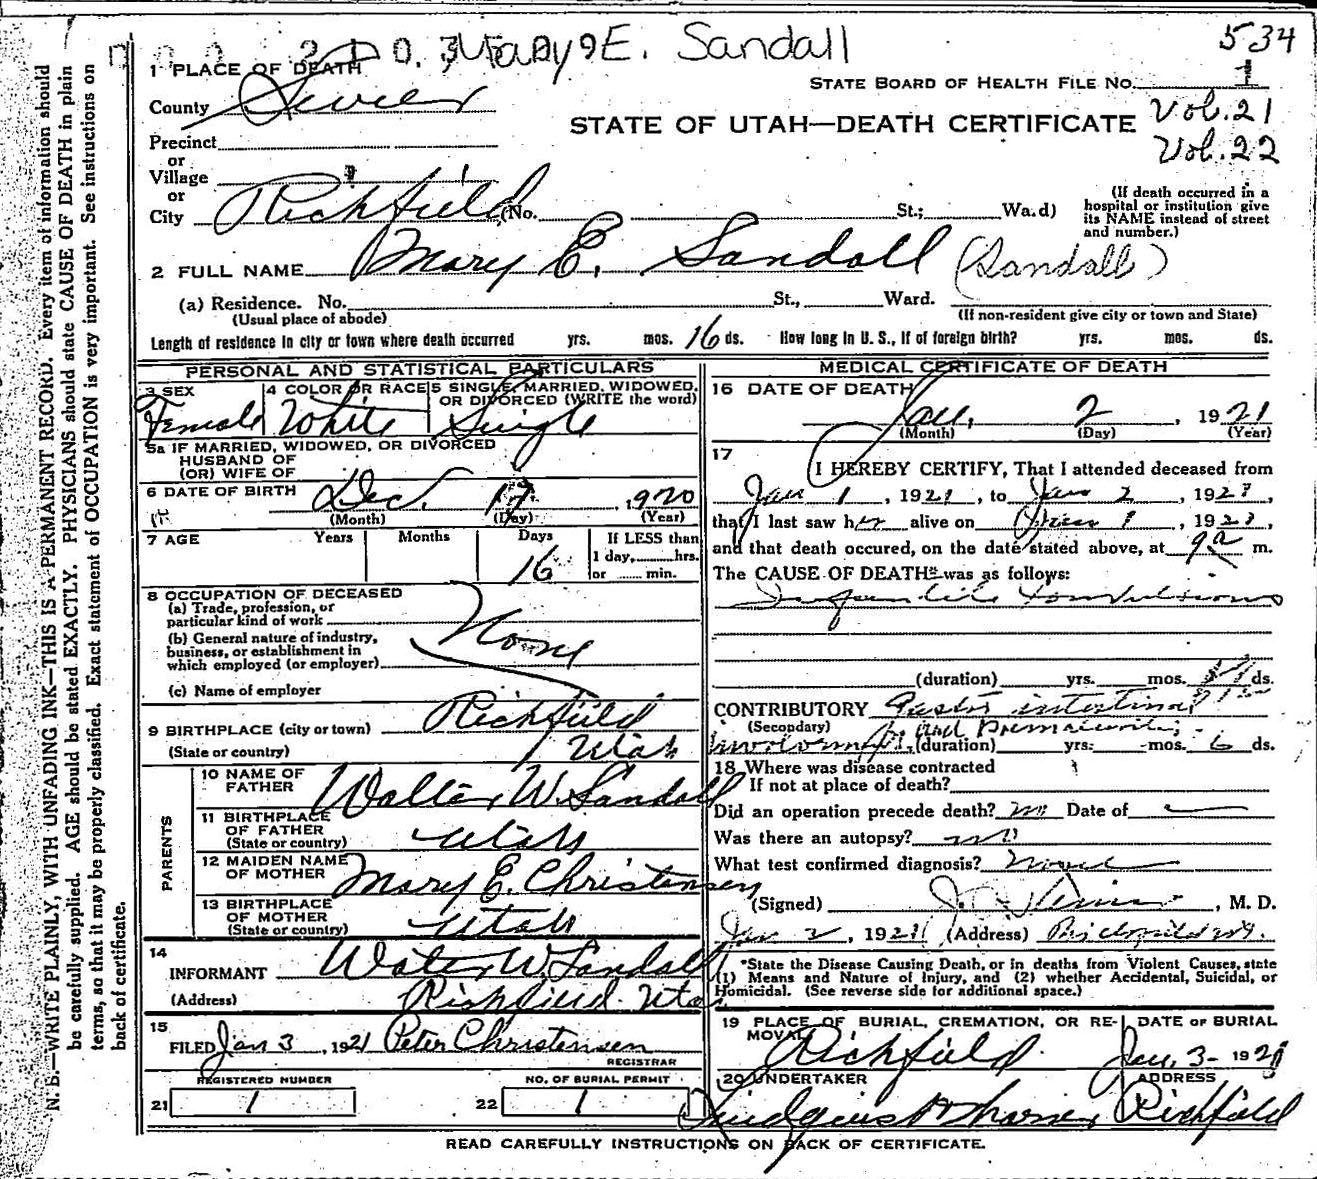 Mary E. Sandall
534
1 PLACE OF DEATH
STATE BOARD OF HEALTH FILE NO. 1
County Sevier
STATE OF UTAH—DEATH CERTIFICATE
Vol. 21
Vol. 22
Precinct
or
Village
or
City Richfield (No. St.; Wa.d)
(If death occurred in a hospital or institution give its NAME instead of street and number.)
2 FULL NAME Mary E. Sandall (Sandall)
(a) Residence. No. St., Ward.
(Usual place of abode) (If non-resident give city or town and State)
Length of residence in city or town where death occurred yrs. mos. 16 ds. How long in U. S., if of foreign birth? yrs. mos. ds.
PERSONAL AND STATISTICAL PARTICULARS
3 SEX Female
4 COLOR OR RACE White
5 SINGLE, MARRIED, WIDOWED, OR DIVORCED (WRITE the word) Single
5a IF MARRIED, WIDOWED, OR DIVORCED
HUSBAND OF
(OR) WIFE OF
6 DATE OF BIRTH Dec. 17, 1920
(Month) (Day) (Year)
7 AGE Years Months Days If LESS than
16 1 day, hrs.
or min.
8 OCCUPATION OF DECEASED
(a) Trade, profession, or
particular kind of work None
(b) General nature of industry,
business, or establishment in
which employed (or employer)
(c) Name of employer
9 BIRTHPLACE (city or town) Richfield
(State or country) Utah
PARENTS
10 NAME OF FATHER Walter W. Sandall
11 BIRTHPLACE OF FATHER Utah
(State or country)
12 MAIDEN NAME OF MOTHER Mary E. Christensen
13 BIRTHPLACE OF MOTHER Utah
(State or country)
14
INFORMANT Walter W. Sandall
(Address) Richfield Utah
15
FILED Jan 3, 1921 Peter Christensen
REGISTRAR
REGISTERED NUMBER NO. OF BURIAL PERMIT
21 1 22 1
MEDICAL CERTIFICATE OF DEATH
16 DATE OF DEATH
Jan, 2, 1921
(Month) (Day) (Year)
17
I HEREBY CERTIFY, That I attended deceased from
Jan 1, 1921, to Jan 2, 1921,
that I last saw her alive on Jan 1, 1921,
and that death occured, on the date stated above, at 9 a m.
The CAUSE OF DEATH* was as follows:
Infantile Convulsions
(duration) yrs. mos. ds.
CONTRIBUTORY Gastro intestinal
(Secondary) and Prematurity
(duration) yrs. mos. 6 ds.
18 Where was disease contracted
If not at place of death?
Did an operation precede death? no Date of
Was there an autopsy? no
What test confirmed diagnosis?
(Signed) , M. D.
Jan 2, 1921 (Address) Richfield
*State the Disease Causing Death, or in deaths from Violent Causes, state
(1) Means and Nature of Injury, and (2) whether Accidental, Suicidal, or
Homicidal. (See reverse side for additional space.)
19 PLACE OF BURIAL, CREMATION, OR REMOVAL Richfield
DATE OF BURIAL Jan, 3- 1921
20 UNDERTAKER
ADDRESS Richfield
READ CAREFULLY INSTRUCTIONS ON BACK OF CERTIFICATE.
N. B.—WRITE PLAINLY, WITH UNFADING INK—THIS IS A PERMANENT RECORD. Every item of information should
be carefully supplied. AGE should be stated EXACTLY. PHYSICIANS should state CAUSE OF DEATH in plain
terms, so that it may be properly classified. Exact statement of OCCUPATION is very important. See instructions on
back of certificate.